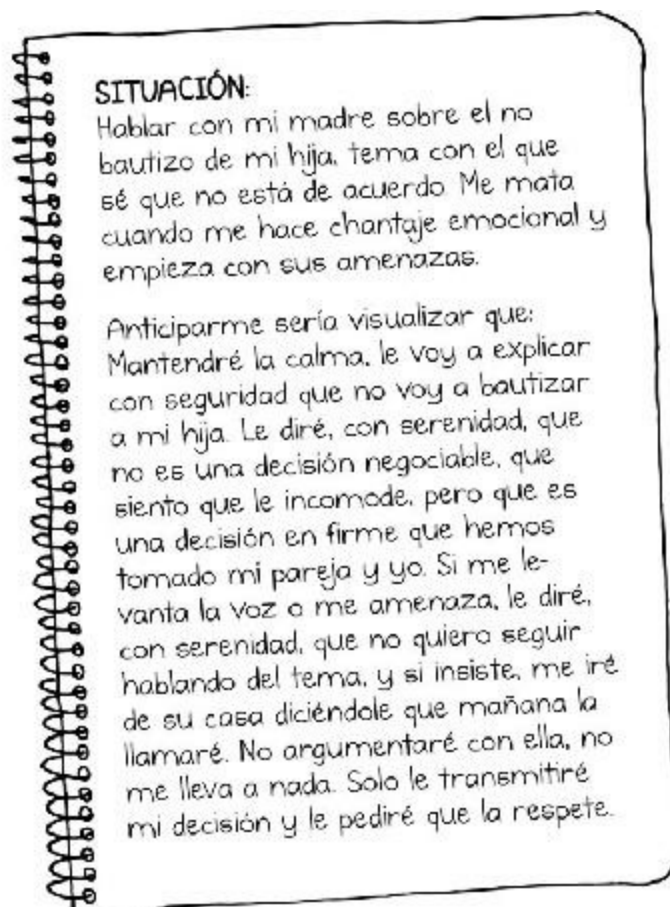 SITUACIÓN:
Hablar con mi madre sobre el no
bautizo de mi hija, tema con el que
sé que no está de acuerdo. Me mata
cuando me hace chantaje emocional y
empieza con sus amenazas.
Anticiparme sería visualizar que:
Mantendré la calma, le voy a explicar
con seguridad que no voy a bautizar
a mi hija. Le diré, con serenidad, que
no es una decisión negociable, que
siento que le incomode, pero que es
una decisión en firme que hemos
tomado mi pareja y yo. Si me le-
vanta la voz o me amenaza, le diré,
con serenidad, que no quiero seguir
hablando del tema, y si insiste, me iré
de su casa diciéndole que mañana la
llamaré. No argumentaré con ella, no
me lleva a nada. Solo le transmitiré
mi decisión y le pediré que la respete.